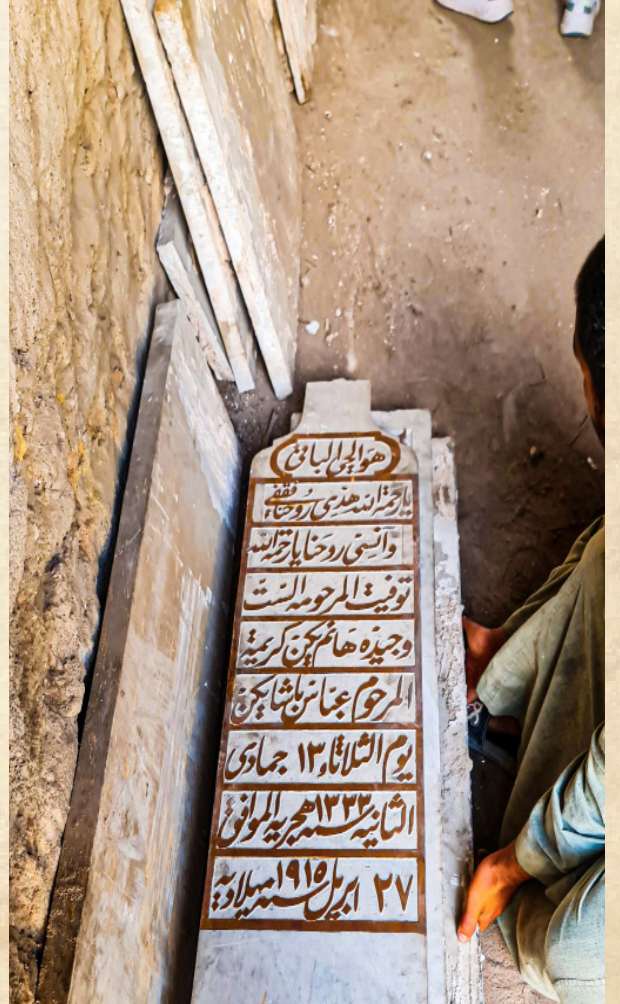 هو الحي الباقي
يا رحمة الله هذي روحنا فقفي
وآنسي روحنا يا رحمة الله
توفيت المرحومه الست
وجيده هانم يكن كريمة
المرحوم عباس باشا يكن
يوم الثلاثاء ١٣ جمادى
الثانيه سنه ١٣٣٣ هجريه الموافق
٢٧ ابريل سنه ١٩١٥ ميلاديه